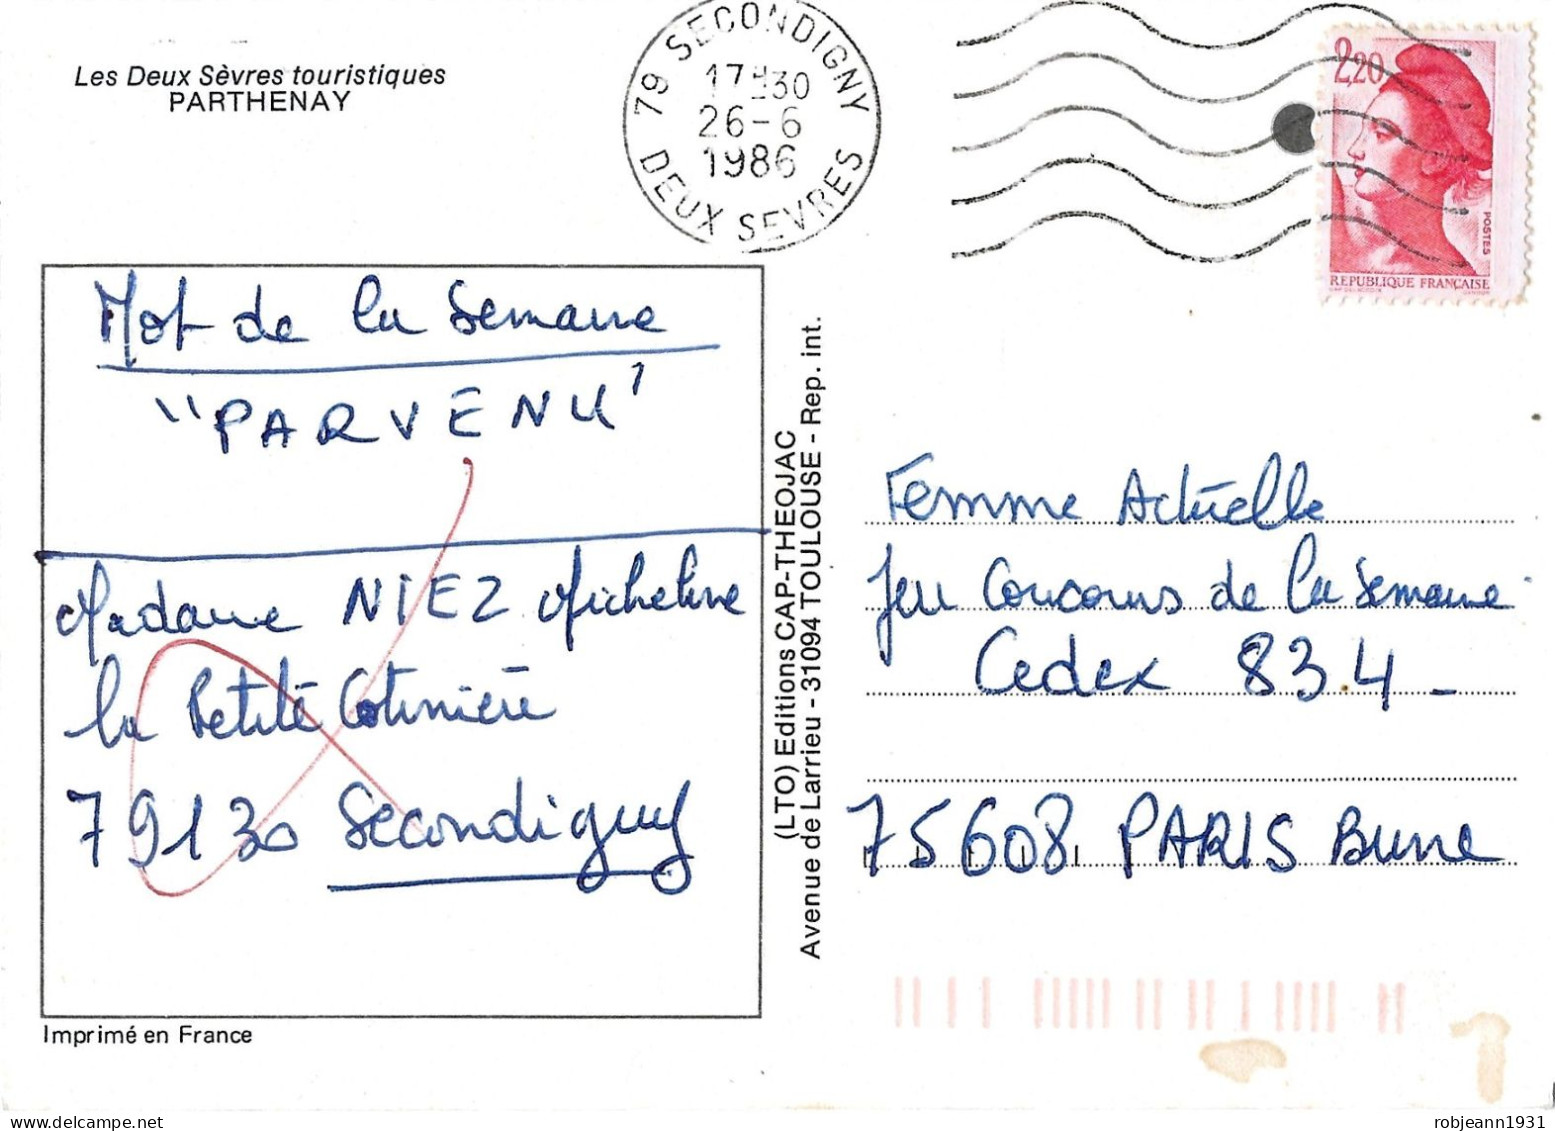 Les Deux Sèvres touristiques
PARTHENAY
79 SECONDIGNY
17H30
26-6
1986
DEUX SEVRES
2,20
POSTES
REPUBLIQUE FRANÇAISE
Mot de la Semaine
"PARVENU"
Madame NIEZ Micheline
la Petite Cotinière
79130 Secondigny
Imprimé en France
(LTO) Editions CAP-THEOJAC
Avenue de Larrieu - 31094 TOULOUSE - Rep. int.
Femme Actuelle
Jeu Concours de la Semaine
Cedex 83.4 -
75608 PARIS Brune
1
robjeann1931